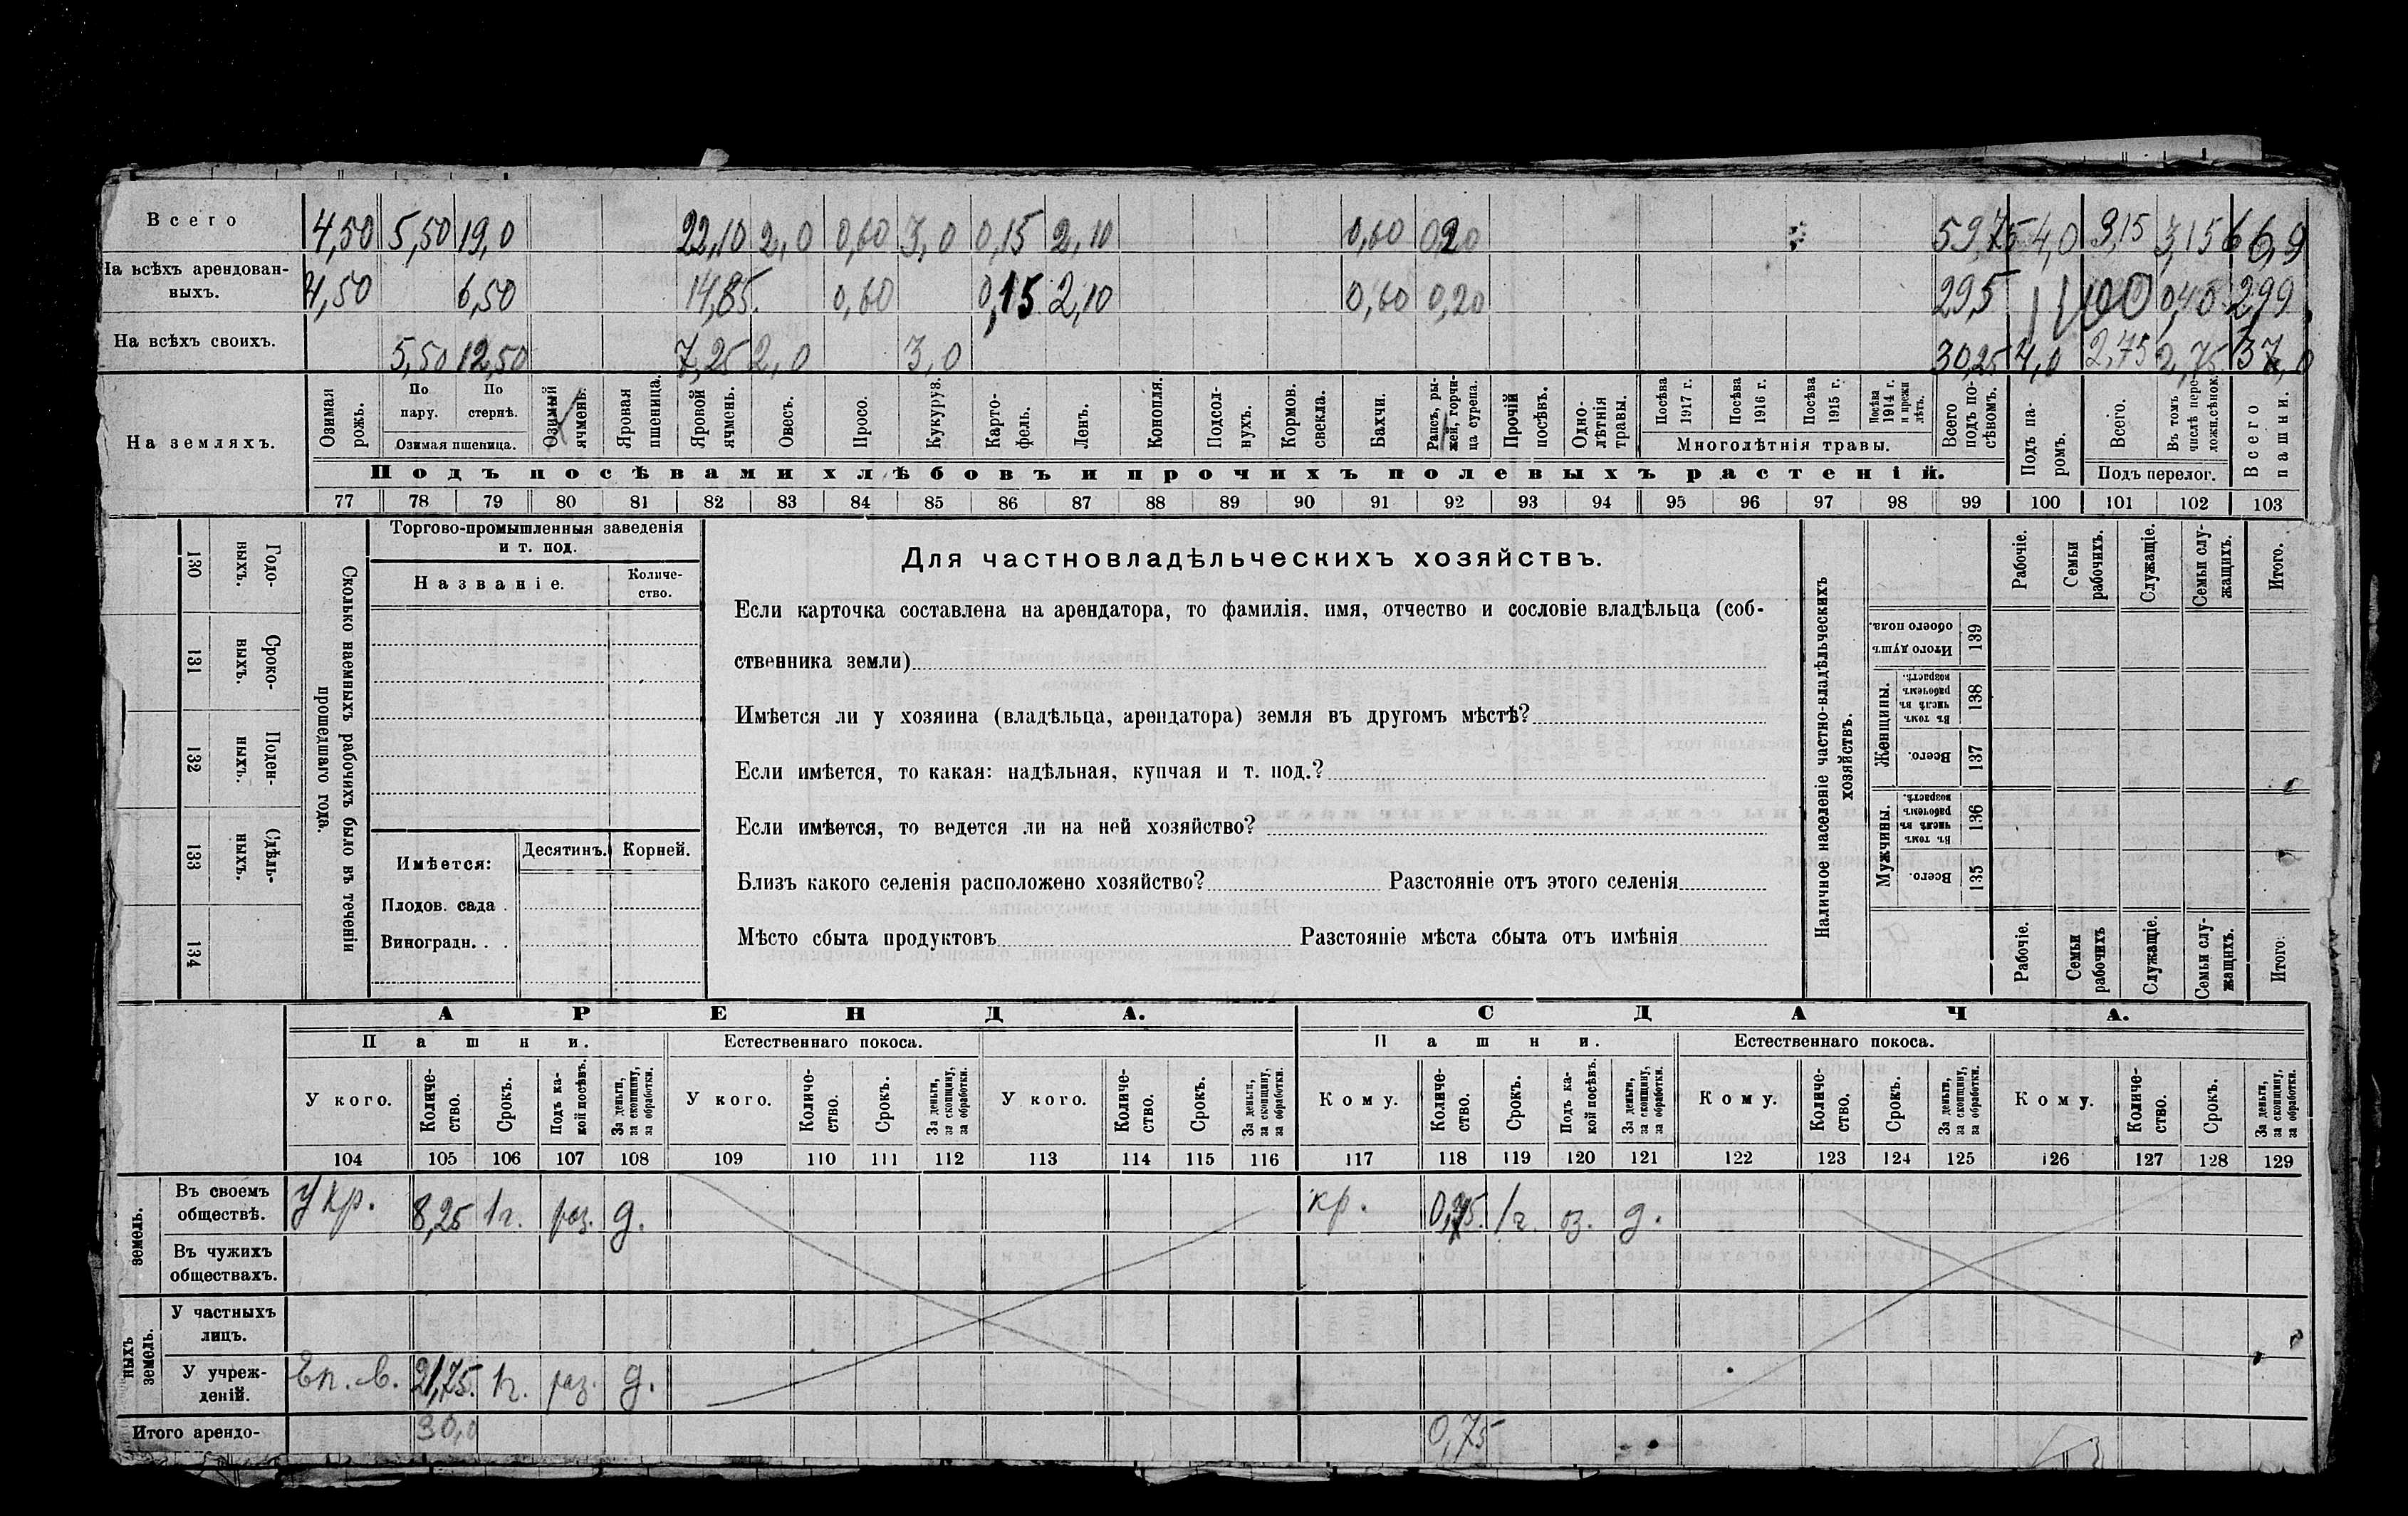 Всего 4,50 5,50 19,0 22,10 2,0 0,60 3,0 0,15 2,10 0,60 0,20 59,75 4,0 3,15 3,15 66,9
На всѣхъ арендован-
ныхъ. 4,50 6,50 14,85. 0,60 0,15 2,10 0,60 0,20 29,5 0,40 29,9
На всѣхъ своихъ. 5,50 12,50 7,25 2,0 3,0 30,25 4,0 2,75 2,75 37,0
На земляхъ.
Озимая рожь.
По пару.
По стернѣ.
Озимая пшеница.
Озимый ячмень.
Яровая пшеница.
Яровой ячмень.
Овесъ.
Просо.
Кукуруз.
Карто-
фель.
Ленъ.
Конопля.
Подсол-
нухъ.
Кормов.
свекла.
Бахчи.
Рапсъ, ры-
жей, горчи-
ца сурепа.
Прочій
посѣвъ.
Одно-
лѣтнія
травы.
Посѣва
1917 г.
Посѣва
1916 г.
Посѣва
1915 г.
Посѣва
1914 г.
и прежн
лѣтъ.
Многолѣтнія травы.
Всего
подъ по-
сѣвомъ.
Подъ па-
ромъ.
Всего.
Въ томъ
числѣ пере-
ложн.сѣнок.
Подъ перелог.
Всего
пашни.
Подъ посѣвами хлѣбовъ и прочихъ полевыхъ растеній.
77 78 79 80 81 82 83 84 85 86 87 88 89 90 91 92 93 94 95 96 97 98 99 100 101 102 103
Годо-
выхъ.
130
Сроко-
ныхъ.
131
Поден-
ныхъ.
132
Сдѣль-
ныхъ.
133
134
Сколько наемныхъ рабочихъ было въ теченіи
прошедшаго года.
Торгово-промышленныя заведенія
и т. под.
Названіе.
Количе-
ство.
Имѣется:
Десятинъ.
Корней.
Плодов. сада .
Виноградн. . .
Для частновладѣльческихъ хозяйствъ.
Если карточка составлена на арендатора, то фамилія, имя, отчество и сословіе владѣльца (соб-
ственника земли)
Имѣется ли у хозяина (владѣльца, арендатора) земля въ другомъ мѣстѣ?
Если имѣется, то какая: надѣльная, купчая и т. под.?
Если имѣется, то ведется ли на ней хозяйство?
Близъ какого селенія расположено хозяйство? Разстояніе отъ этого селенія
Мѣсто сбыта продуктовъ Разстояніе мѣста сбыта отъ имѣнія
Наличное населеніе частно-владѣльческихъ
хозяйствъ.
Рабочіе.
Семьи
рабочихъ.
Служащіе.
Семьи слу-
жащихъ.
Итого.
Итого душъ
обоего пола.
139
Женщины.
Въ томъ
числѣ въ
рабочемъ
возрастѣ.
138
Всего.
137
Мужчины.
Въ томъ
числѣ въ
рабочемъ
возрастѣ.
136
Всего.
135
Рабочіе.
Семьи
рабочихъ
Служащіе.
Семьи слу-
жащихъ.
Итого:
АРЕНДА. СДАЧА.
Пашни. Естественнаго покоса. Пашни. Естественнаго покоса.
У кого. Количе-
ство. Срокъ. Подъ ка-
кой посѣвъ. За деньги,
за скопщину,
за обработки.
У кого. Количе-
ство. Срокъ. За деньги,
за скопщину,
за обработки.
У кого. Количе-
ство. Срокъ. За деньги,
за скопщину,
за обработки.
Кому. Количе-
ство. Срокъ. Подъ ка-
кой посѣвъ. За деньги,
за скопщину,
за обработки.
Кому. Количе-
ство. Срокъ. За деньги,
за скопщину,
за обработки.
Кому. Количе-
ство. Срокъ. За деньги,
за скопщину,
за обработки.
104 105 106 107 108 109 110 111 112 113 114 115 116 117 118 119 120 121 122 123 124 125 126 127 128 129
земель.
Въ своемъ
обществѣ. У кр. 8,25 1 г. раз. д. кр. 0,75. 1 г. оз. д.
Въ чужихъ
обществахъ.
ныхъ
земель.
У частныхъ
лицъ.
У учреж-
деній. 21,75. 1 г. раз. д.
Итого арендо- 30,0 0,75